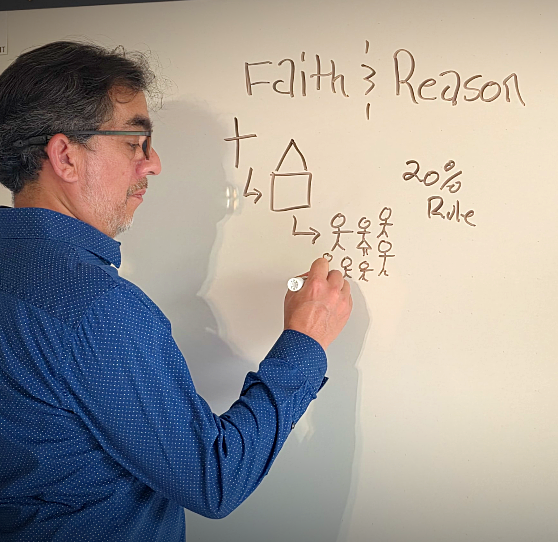 Faith & Reason
20%
Rule